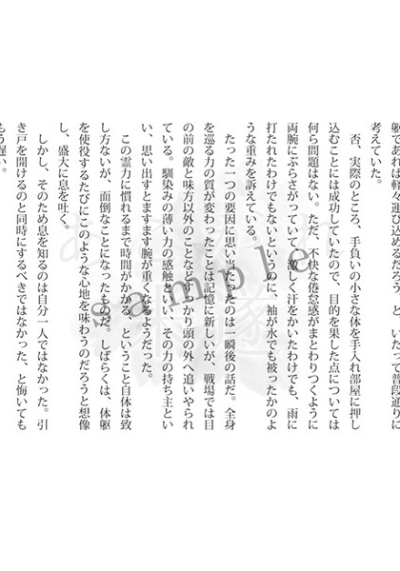 躯であれば軽々運び込めるだろう、と、いたって普段通りに
考えていた。
　否、実際のところ、手負いの小さな体を手入れ部屋に押し
込むことには成功していたので、目的を果した点については
何ら問題はない。ただ、不快な倦怠感がまとわりつくように
両腕にぶらさがっていて、激しく汗をかいたわけでも、雨に
打たれたわけでもないというのに、袖が水でも被ったかのよ
うな重みを訴えている。
　たった一つの要因に思い当たったのは一瞬後の話だ。全身
を巡る力の質が変わったことは記憶に新しいが、戦場では目
の前の敵と味方以外のことなどすっかり頭の外へ追いやられ
ている。馴染みの薄い力の感触といい、その力の持ち主とい
い、思い出すとますます腕が重くなるようだった。
　この霊力に慣れるまで時間がかかる、ということ自体は致
し方ないが、面倒なことになったものだ。しばらくは、体躯
を使役するたびにこのような心地を味わうのだろうと想像
し、盛大に息を吐く。
　しかし、そのため息を知るのは自分一人ではなかった。引
き戸を開けるのと同時にするべきではなかった、と悔いても
もう遅い。
sample